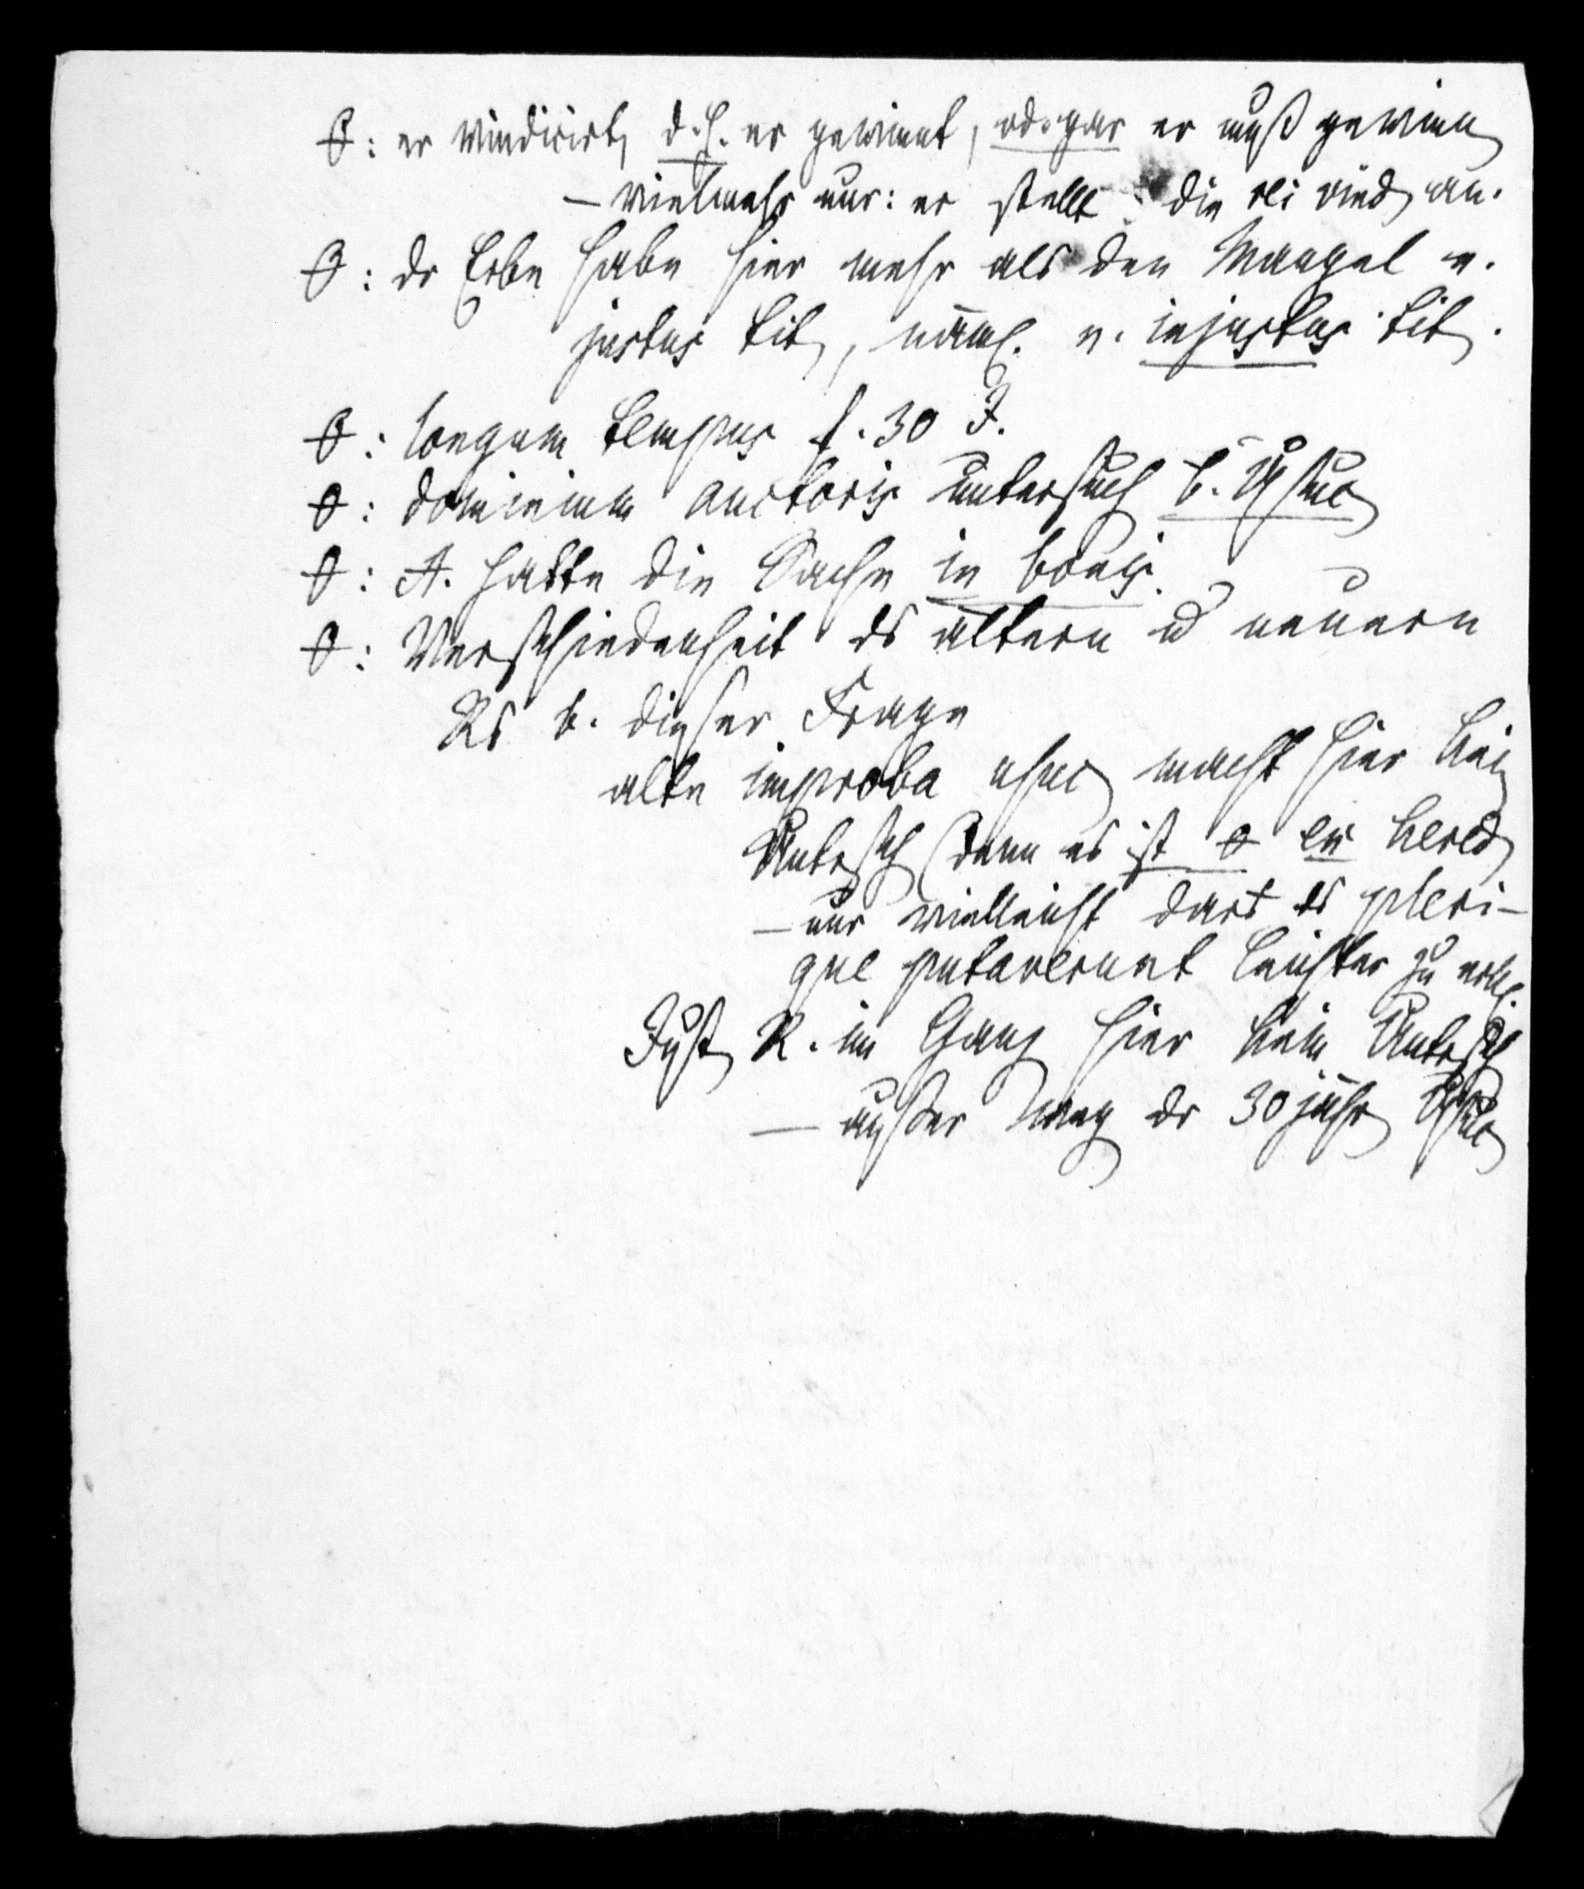 θ: er vindicirt, d.h. er gewinnt, od. gar er muß gewinn
– vielmehr nur: er stellt die rei vind an.
θ: dr Erbe habe hier mehr als den Mangel e.
justus tit, näml. e. injustus tit.
θ: longum tempus f. 30 J.
θ: dominium auctoris untersuch b. Usuc
θ: A. hatte die Sache in bonis.
θ: Verschiedenheit ds ältern u neuern
Rs b. dieser Frage
alte improba usuc macht hier kein
Untrsch (denn es ist θ ein hered
– nur vielleicht dort ds pleri-
que putaverunt leichter zu erkl.
Just R. im Ganz hier kein Untrsch
– außer weg dr 30jähr Usuc